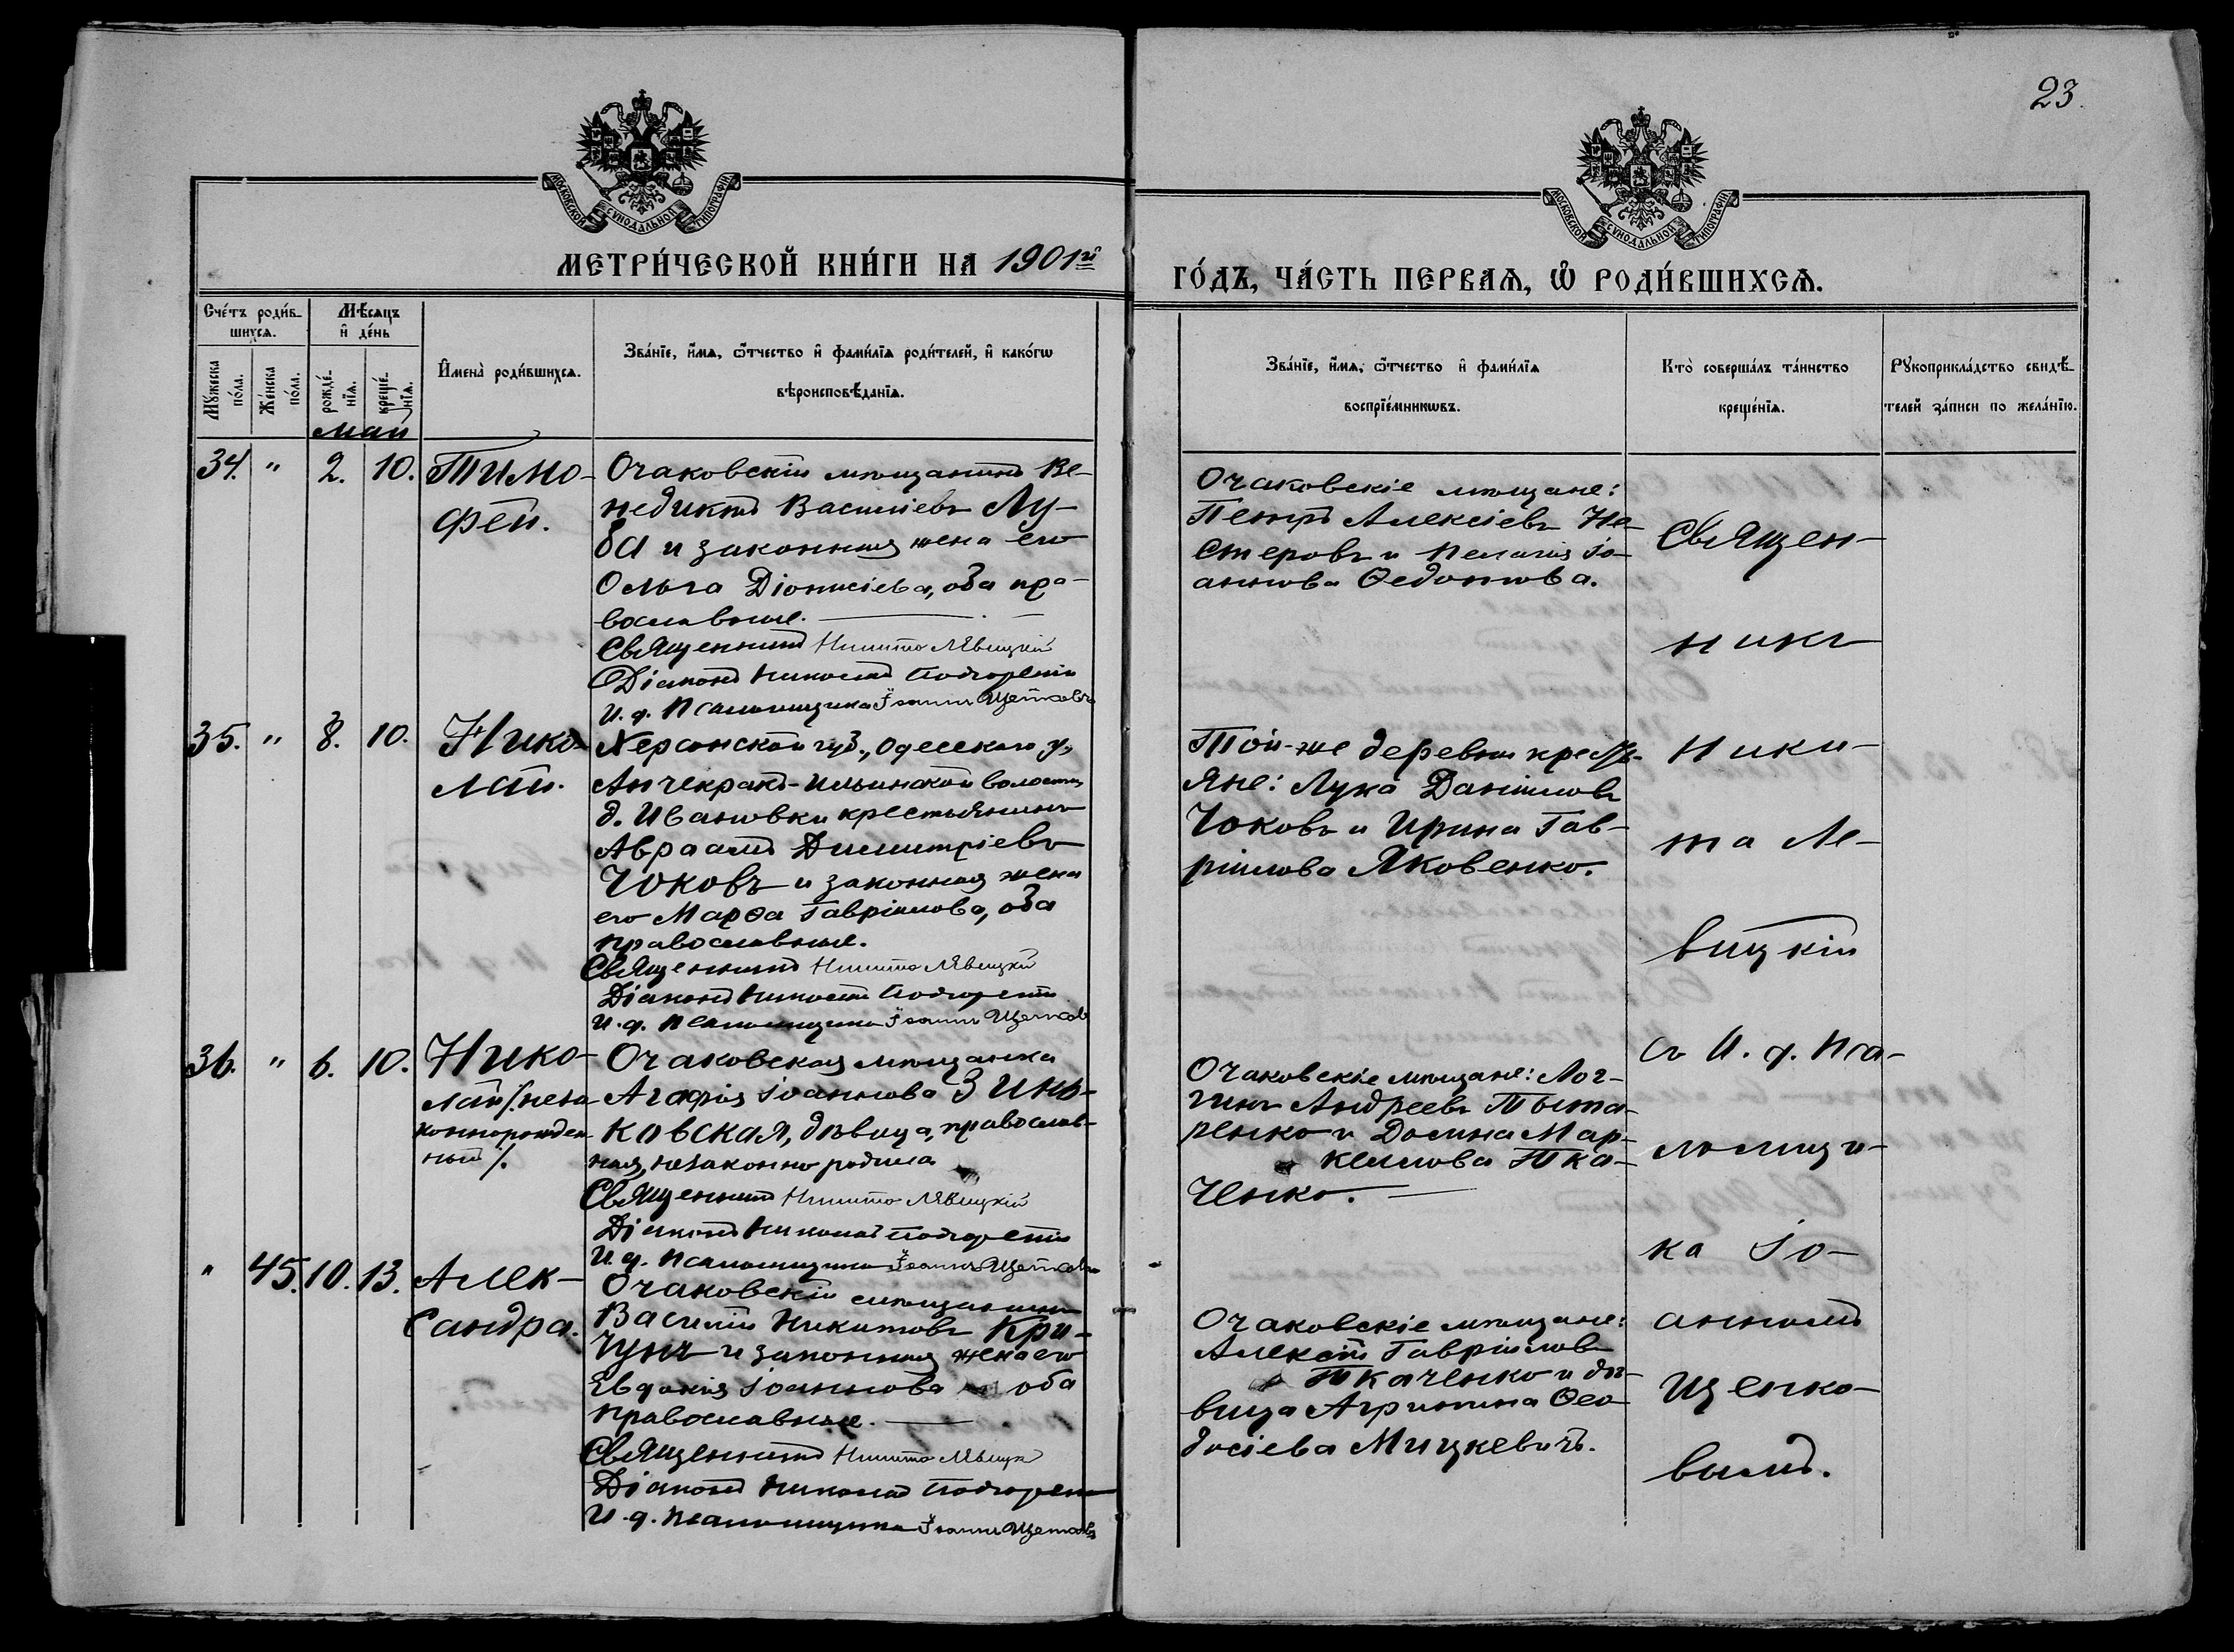 23.
МОСКОВСКОЙ СѴНОДАЛЬНОЙ ТИПОГРАФІИ
МОСКОВСКОЙ СѴНОДАЛЬНОЙ ТИПОГРАФІИ
МЕТРИ́ЧЕСКОЙ КНИ́ГИ НА 1901й
ГО́ДЪ, ЧА́СТЬ ПЕРВАѦ, Ѡ҆ РОДИ́ВШИХСѦ.
Сче́тъ роди́в-
шихсѧ.
Мѣ́сѧцъ
и҆ де́нь
Мꙋжеска
по́ла.
Же́нска
по́ла.
рожде́-
нїѧ.
креще́-
нїѧ.
И҆мена̀ роди́вшихсѧ.
Зва́нїе, и҆́мѧ, ѻ҆́тчество и҆ фами́лїѧ роди́телей, и҆ како́гѡ
вѣроисповѣ́данїѧ.
Зва́нїе, и҆́мѧ, ѻ҆́тчество и҆ фами́лїѧ
воспрїе́мникѡвъ.
Кто̀ соверша́лъ та́инство
креще́нїѧ.
Рꙋкоприкла́дство свидѣ́-
телей за́писи по жела́нїю.
Май
34. " 2. 10. Тимо-
фей.
Очаковскій мѣщанинъ Ве-
недиктъ Василіевъ Лу-
ба и законная жена его
Ольга Діонисіева, оба пра-
вославные.
Священникъ Никита Лѣвицкій
Діаконъ Николай Подгорскій
И. д. Псаломщика Іоаннъ Щенковъ
Очаковскіе мѣщане:
Петръ Алексіевъ Не-
стеровъ и Пелагія Іо-
аннова Ѳедотова.
35. " 8. 10. Нико-
лай.
Херсонской губ., Одесскаго у.,
Анчекракъ-Ильинской волости,
д. Ивановки крестьянинъ
Авраамъ Димитріевъ
Чоковъ и законная жена
его Марѳа Гавріилова, оба
православные.
Священникъ Никита Лѣвицкій
Діаконъ Николай Подгорскій
И. д. Псаломщика Іоаннъ Щенковъ
Той-же деревни кресть-
яне: Лука Даніиловъ
Чоковъ и Ирина Гав-
ріилова Яковенко.
36. " 6. 10. Нико-
лай /неза-
коннорожден-
ный/.
Очаковская мѣщанка
Агафія Іоаннова Зинь-
ковская, дѣвица, православ-
ная, незаконно родила
Священникъ Никита Лѣвицкій
Діаконъ Николай Подгорскій
И. д. Псаломщика Іоаннъ Щенковъ
Очаковскіе мѣщане: Лог-
гинъ Андреевъ Тыта-
ренко и Домна Мар-
келлова Тка-
ченко.
" 45. 10. 13. Алек-
сандра.
Очаковскій мѣщанинъ
Василій Никитовъ Кри-
чунъ и законная жена его
Евдокія Іоаннова оба
православные.
Священникъ Никита Лѣвицкій
Діаконъ Николай Подгорскій
И. д. Псаломщика Іоаннъ Щенковъ
Очаковскіе мѣщане:
Алексій Гавріиловъ
Ткаченко и дѣ-
вица Агрипина Ѳео-
досіева Мицкевичъ.
Священ-
никъ
Ники-
та Ле-
вицкій
съ И. д. Пса-
ломщи-
ка Іо-
анномъ
Щенко-
вымъ.